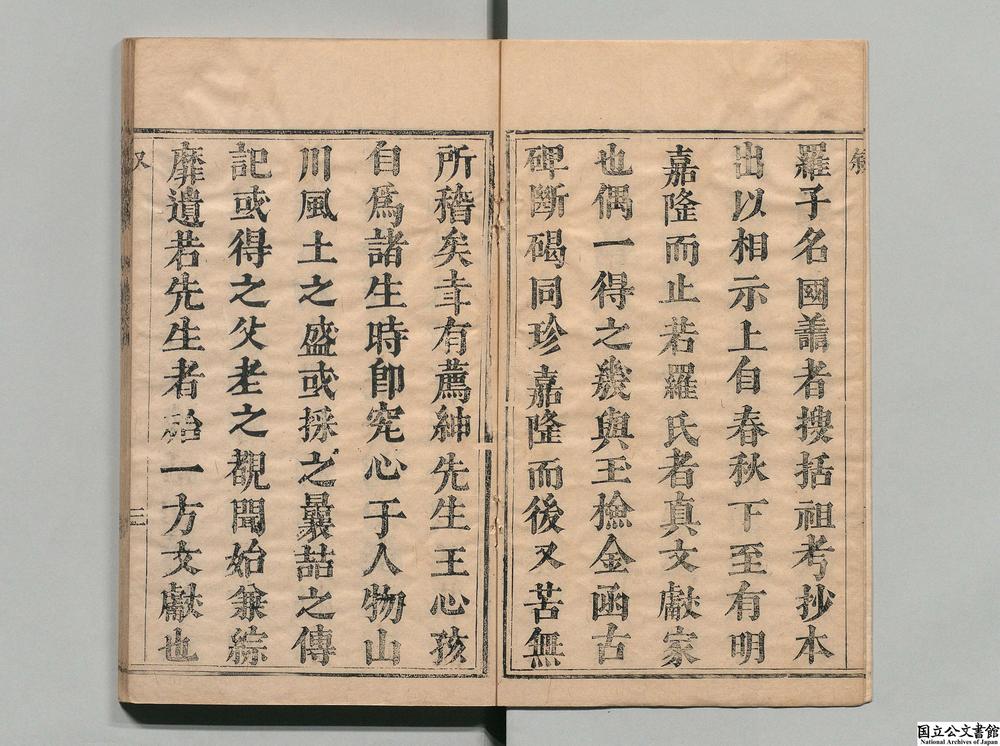 羅子名國蕭者搜括祖考抄本
出以相示上自春秋下至有明
嘉隆而止若羅氏者真文獻家
也偶一得之幾與玉檢金函古
碑斷碣同珍嘉隆而後又苦無
所稽矣幸有薦紳先生王心孩
自爲諸生時卽究心于人物山
川風土之盛或採之曩喆之傳
記或得之父老之覩聞始兼綜
靡遺若先生者殆一方文獻也
又
三
国立公文書館
National Archives of Japan